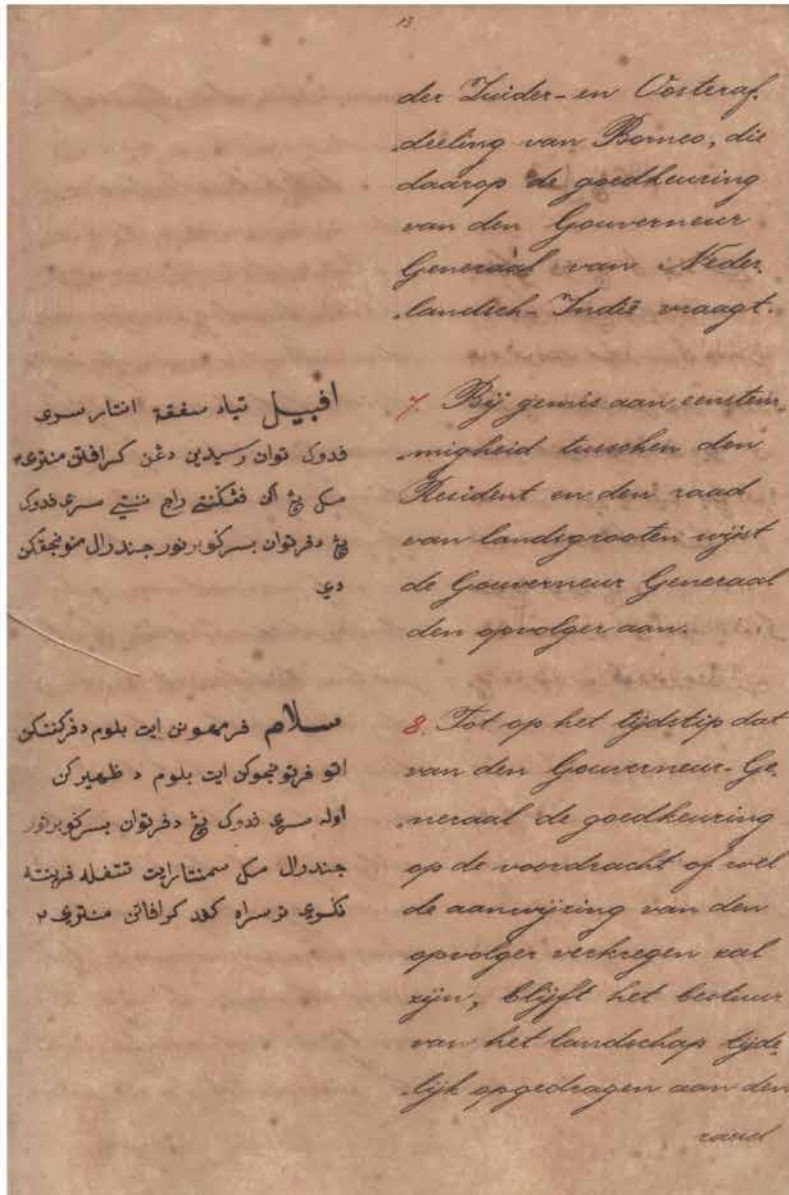 13
der Zuider- en Oosteraf.
.deeling van Borneo, die
daarop de goedkeuring
van den Gouverneur
Generaal van Neder.
.landsch-Indië vraagt.
7. Bij gemis aan eenstem.
.migheid tusschen den
Resident en den raad
van landsgrooten wijst
de Gouverneur Generaal
den opvolger aan.
8. Tot op het tijdstip dat
van den Gouverneur-Ge.
.neraal de goedkeuring
op de voordracht of wel
de aanwijzing van den
opvolger verkregen zal
zijn, blijft het bestuur
van het landschap tijde.
.lijk opgedragen aan den
raad
افبيل تياد سفقة انتار سري
فدوك توان رسيدين دڠن كرافتن منتري٢
مک يڠ اکن فڠكنتي راج سري فدوك
يڠ دفرتوان بسر كوبرنور جندرال منونجقكن
دي
سلام فرمهونن ايت بلوم دفركننكن
اتو فرتونجوكن ايت بلوم د ظهيركن
اوله سري فدوك يڠ دفرتوان بسر كوبرنور
جندرال مک سمنتارايت تتفله فرينته
نكري ترسراه كفد كرافاتن منتري٢